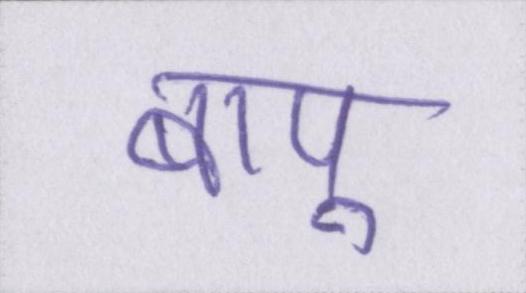 बापू